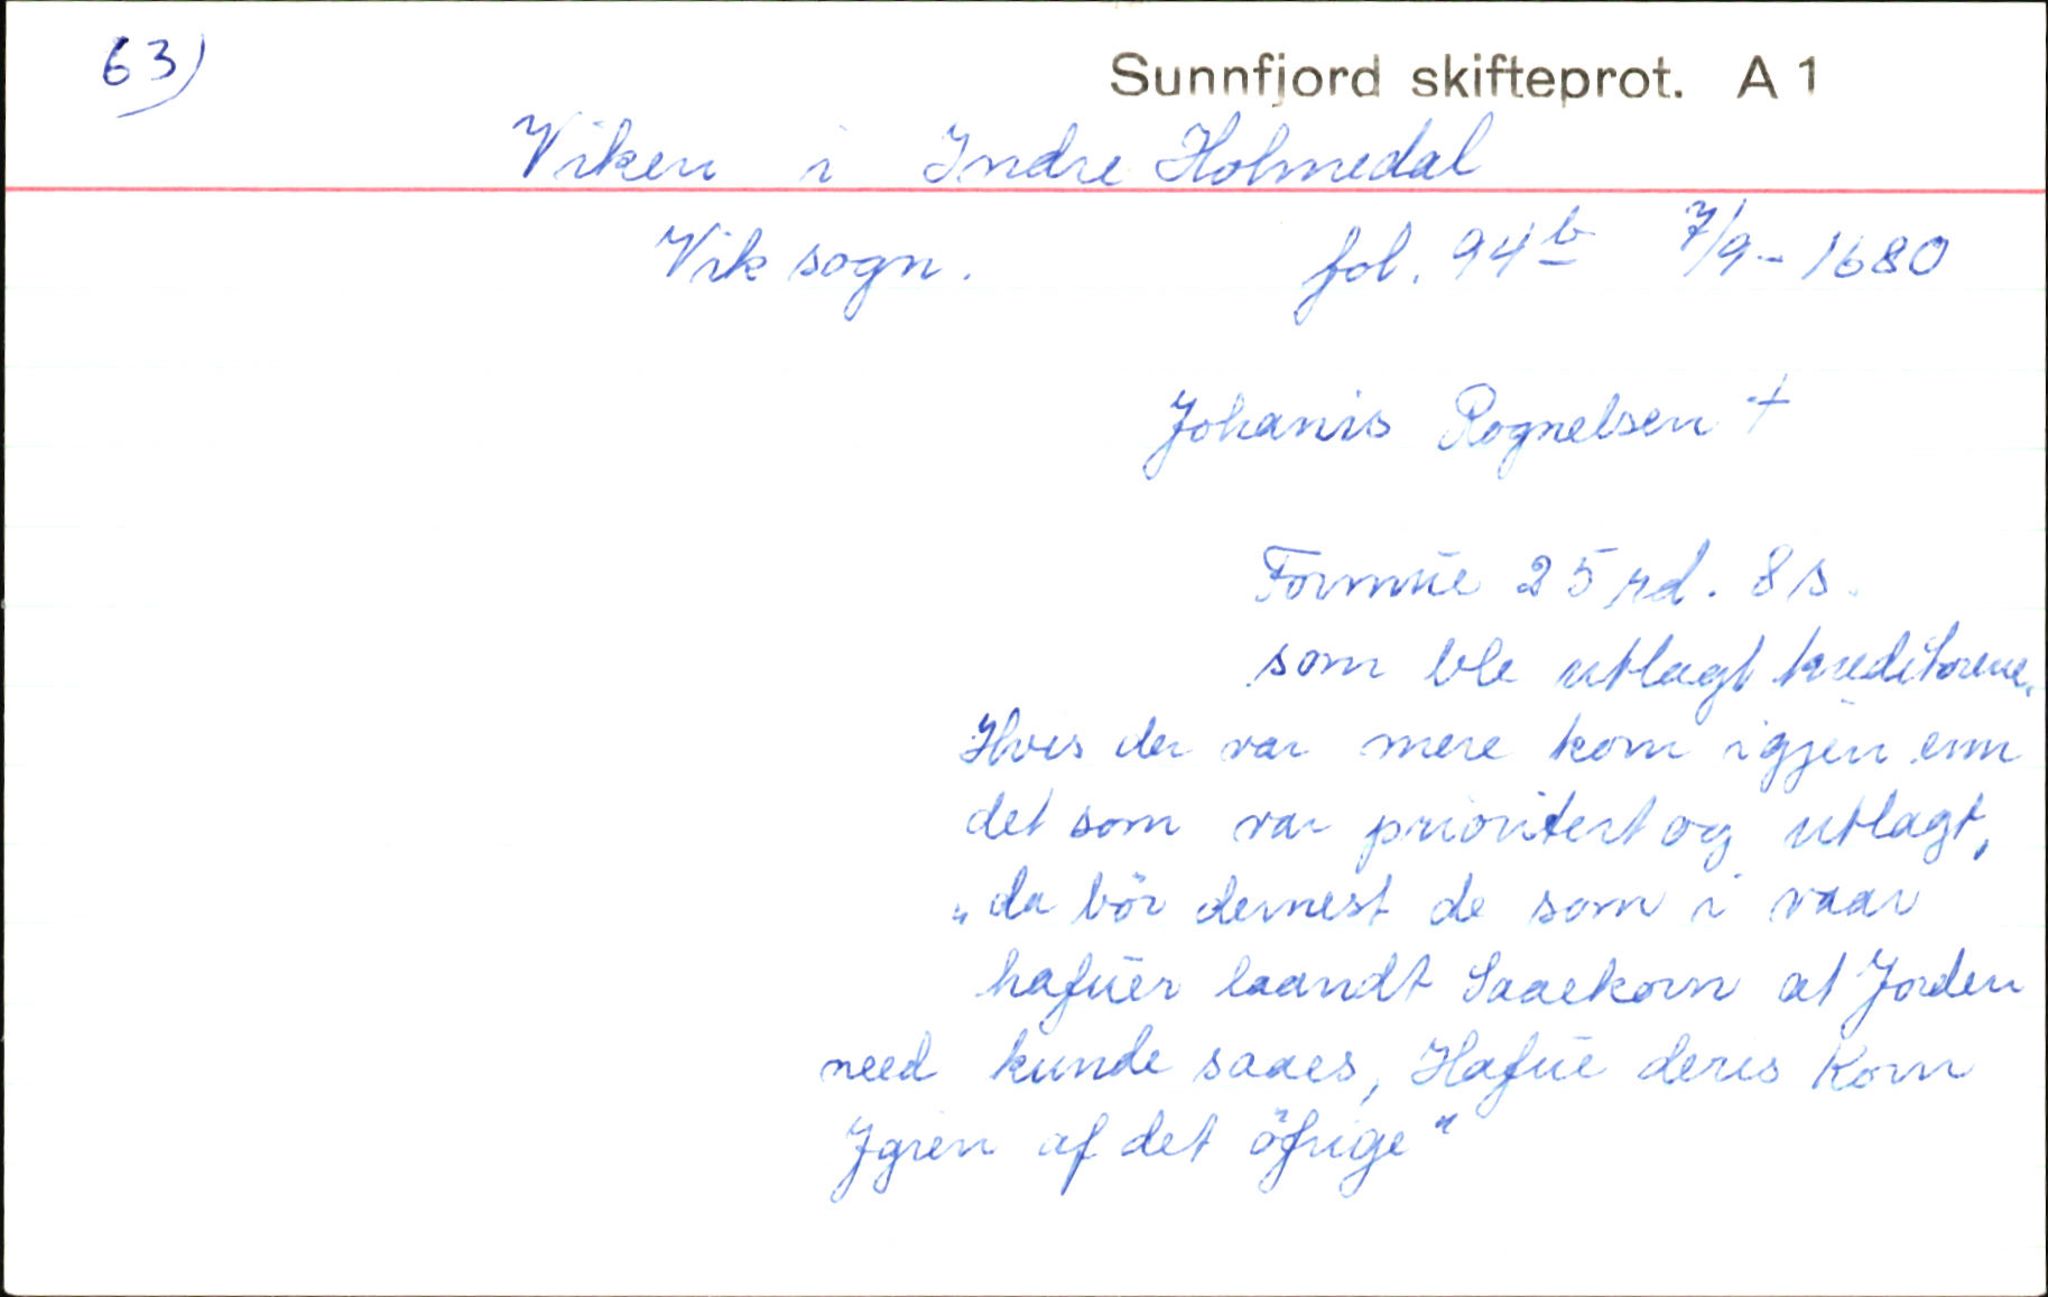 63)
Sunnfjord skifteprot. A 1
Viken i Indre Holmedal
Vik sogn. fol. 94b 7/9-1680
Johanis Rognelsen +
Formüe 25 rd. 8 s.
som ble utlagt kreditorene.
Hvis der var mere korn igjen enn
det som var prioritert og utlagt,
„da bör dernest de som i vaar
hafüer laandt Saaekorn at Jorden
need kunde saaes, Hafüe deres Korn
Jgien af det öfrige"